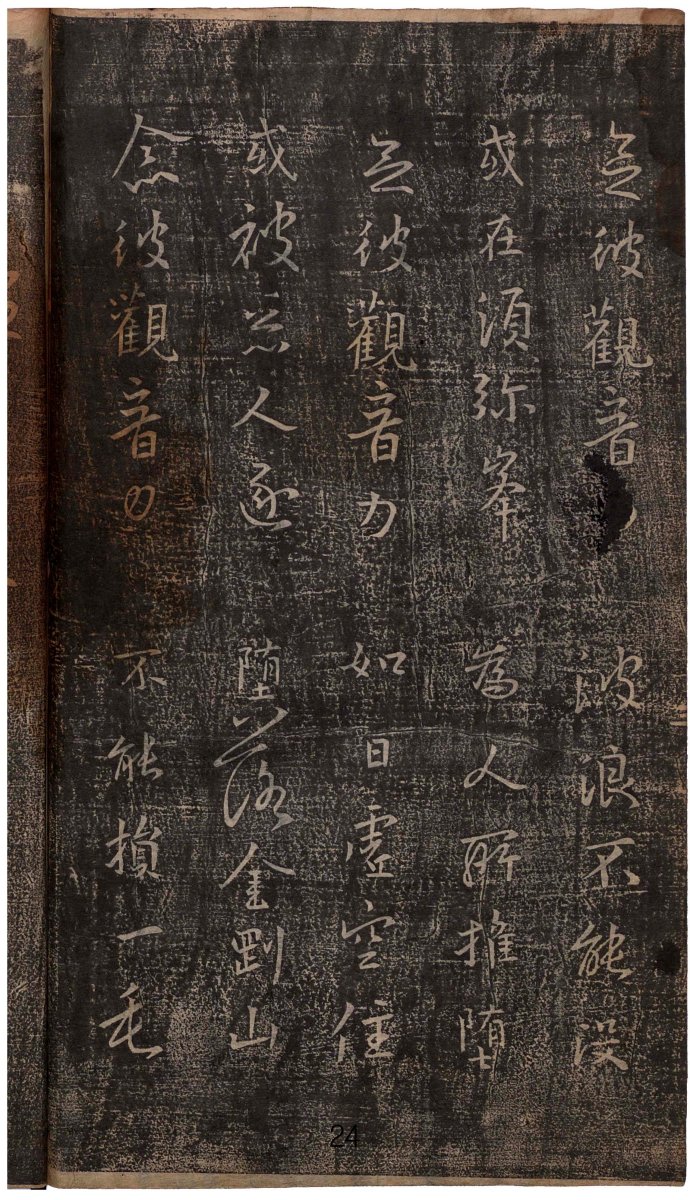 念彼觀音 波浪不能没
或在須弥峯 為人所推堕
念彼觀音力 如日虚空住
或被惡人逐 堕落金剛山
念彼觀音力 不能損一毛
24